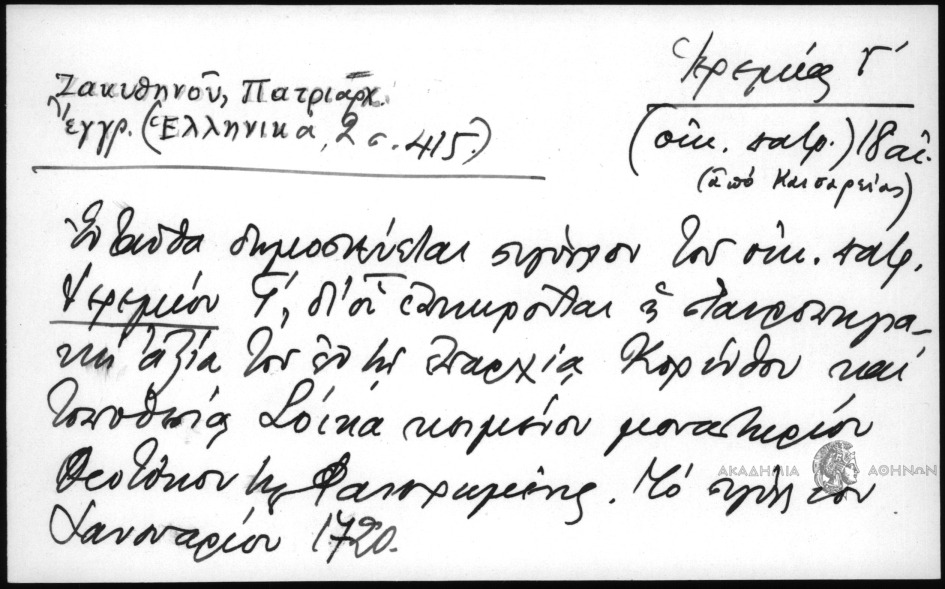 Ζακυθηνοῦ, Πατριαρχ.
ἔγγρ. (Ἑλληνικά, 2 σ. 415)
Ἱερεμίας Γ΄
(οἰκ. πατρ.) 18 αἰ.
(ἀπό Καισαρείας)
Ἐνταῦθα δημοσιεύεται σιγίλλιον τοῦ οἰκ. πατρ.
Ἱερεμίου Γ΄, δι' οὗ ἐπικυροῦται ἡ σταυροπηγια-
κή ἀξία τοῦ ἐν τῇ ἐπαρχίᾳ Κορίνθου καί
τοποθεσίᾳ κειμένου μοναστηρίου
Θεοτόκου τῆς Φανερωμένης. Τό
Ἰανουαρίου 1720.
ΑΚΑΔΗΜΙΑ ΑΘΗΝΩΝ